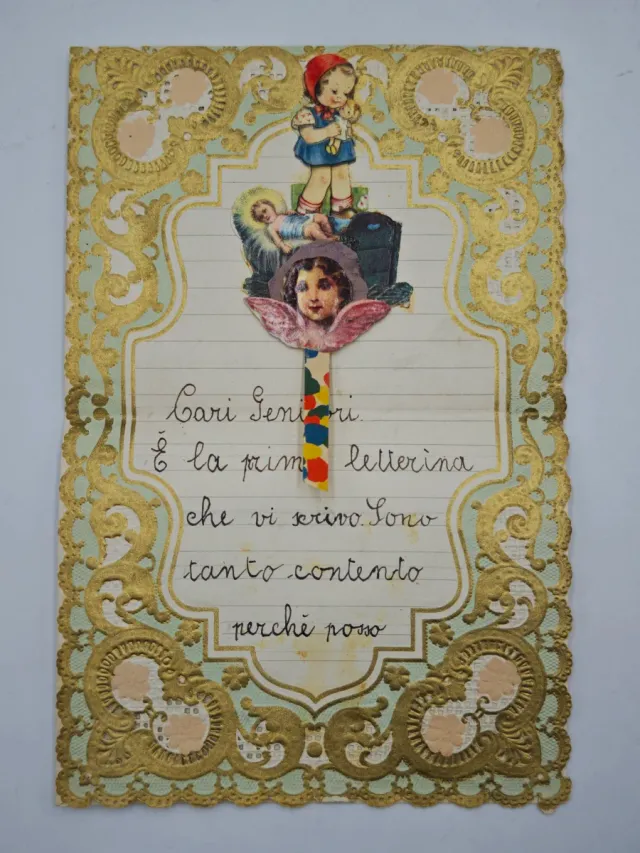 Cari Geni ri.
È la prim letterina
che vi scrivo. Sono
tanto contento
perchè posso